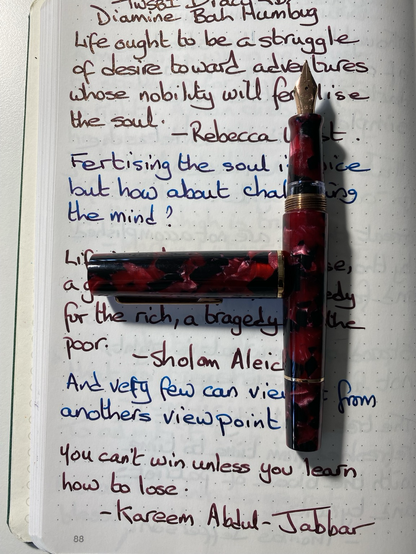 Diamine Bah Humbug
Life ought to be a struggle
of desire toward adventures
whose nobility will
the soul. – Rebecca
Fertising the soul
but how about
the mind?
a
for the rich, a tragedy the
poor. – Sholom
And very few can from
anothers viewpoint
You can't win unless you learn
how to lose.
– Kareem Abdul-Jabbar
88